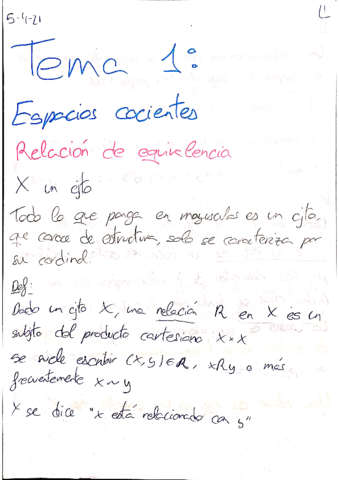 5-4-21
Tema 1:
Espacios cocientes
Relación de equivalencia
X un cjto
Todo lo que ponga en mayusculas es un cjto,
qe carece de estructura, solo se caracteriza por
su cardinal.
Def:
Dado un cjto X, una relación R en X es un
subjto del producto cartesiano X×X
se suele escribir (x,y)∈R, xRy o más
frecuentemente x~y
Y se dice "x está relacionado con y"